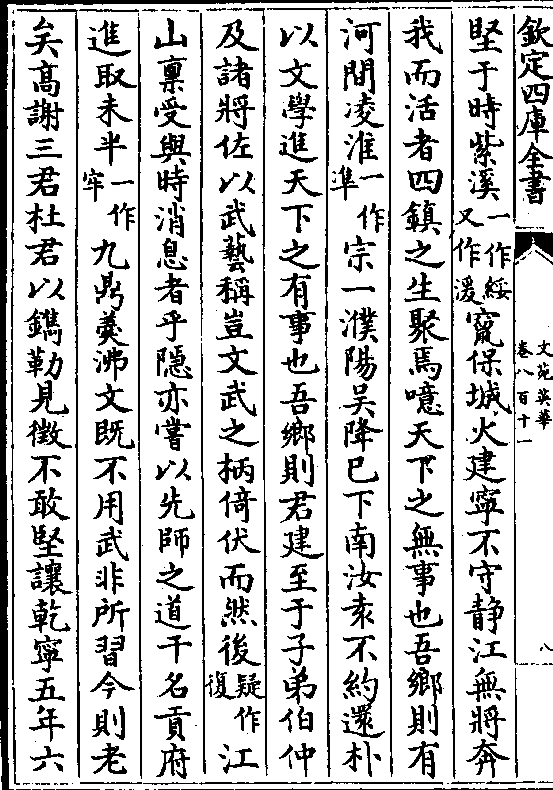 欽定四庫全書
文苑英華
卷八百十一
八
堅于時紫溪一作綏又作湲寇保城火建寧不守靜江無將奔
我而活者四鎮之生聚焉噫天下之無事也吾鄉則有
河間凌淮一作準宗一濮陽吳降已下南汝袁不約還朴
以文學進天下之有事也吾鄉則君建至于子弟伯仲
及諸將佐以武藝稱豈文武之柄倚伏而然後疑作復江
山禀受與時消息者乎隱亦嘗以先師之道干名貢府
進取未半一作牢九鼎羹沸文既不用武非所習今則老
矣高謝三君杜君以鐫勒見徵不敢堅讓乾寧五年六